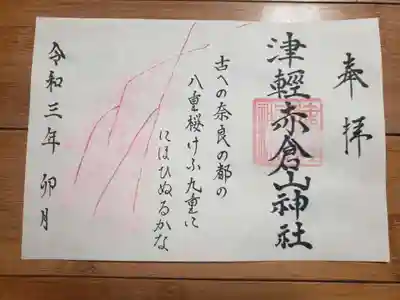 奉拝
津輕赤倉山神社
古への奈良の都の
八重桜けふ九重に
にほひぬるかな
令和三年 卯月